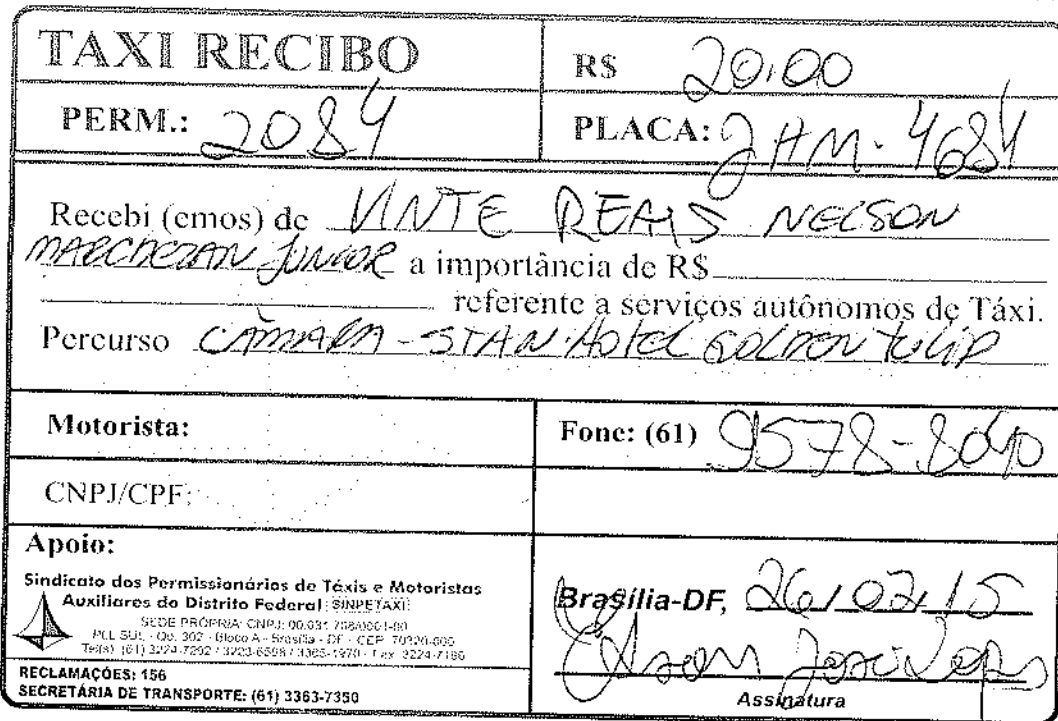 TAXI RECIBO
R$ 20,00
PERM.: 2084
PLACA: JHM-4684
Recebi (emos) de VINTE REAIS NELSON
MARCHEZAN JUNIOR a importância de R$
referente a serviços autônomos de Táxi.
Percurso CÂMARA - STAN. HOTEL GOLDEN TULIP
Motorista:
Fone: (61) 9578-8040
CNPJ/CPF:
Apoio:
Sindicato dos Permissionários de Táxis e Motoristas
Auxiliares do Distrito Federal SINPETAXI
SEDE PRÓPRIA: CNPJ: 00.031.768/0001-80
PLL SUL - Qd. 302 - Bloco A - Brasília - DF - CEP 70320-000
Tel(s) (61) 3224-7292 / 3223-6598 / 3365-1970 - Fax 3224-7186
RECLAMAÇÕES: 156
SECRETÁRIA DE TRANSPORTE: (61) 3363-7350
Brasília-DF, 26/02/15
José Lopes
Assinatura